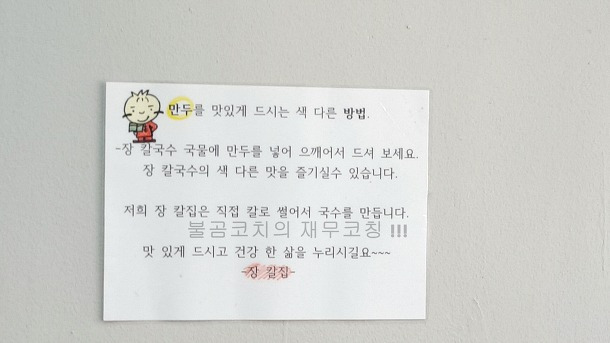 만두를 맛있게 드시는 색 다른 방법.
-장 칼국수 국물에 만두를 넣어 으깨어서 드셔 보세요.
장 칼국수의 색 다른 맛을 즐기실수 있습니다.
저희 장 칼집은 직접 칼로 썰어서 국수를 만듭니다.
불곰코치의 재무코칭 !!!
맛 있게 드시고 건강 한 삶을 누리시길요~~~
-장 칼집-